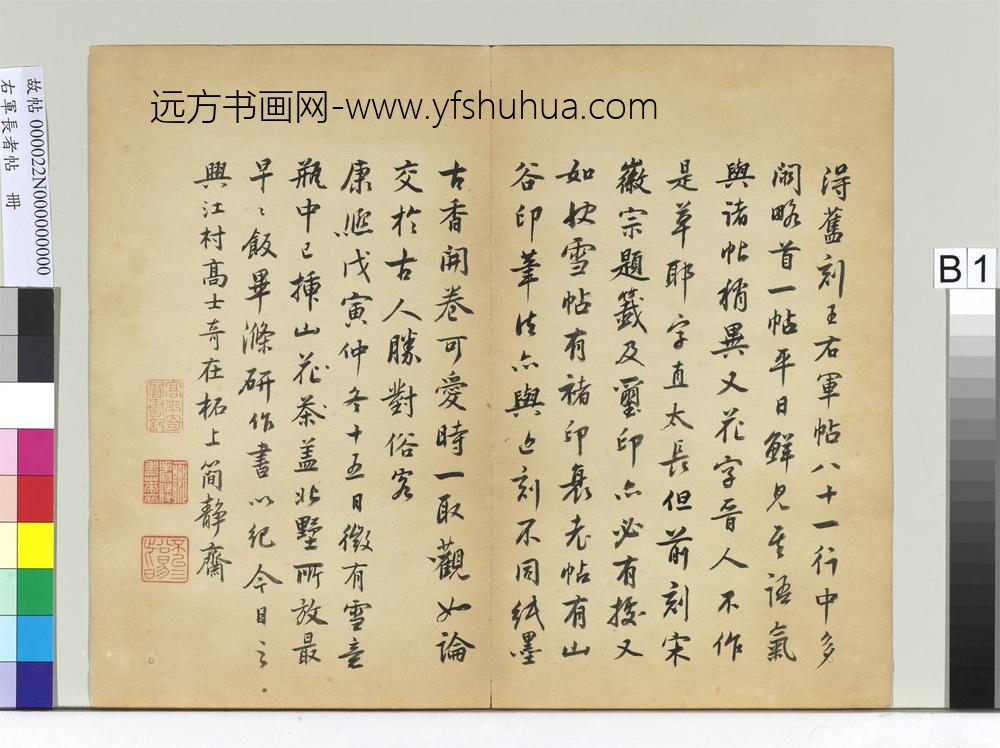 远方书画网-www.yfshuhua.com
故帖 000022N000000000
右軍長者帖 冊
B 1
得舊刻王右軍帖八十一行中多
闕略首一帖平日鮮見其語氣
與諸帖稍異又花字晉人不作
是草耶字直太長但前刻宋
徽宗題籤及璽印亦必有據又
如快雪帖有褚印衰老帖有山
谷印筆法亦與近刻不同紙墨
古香開卷可愛時一取觀如論
交於古人勝對俗客
康熙戊寅仲冬十五日微有雪意
瓶中已揷山花茶盖北墅所放最
早〻飯畢滌研作書以紀今日之
興江村高士奇在柘上簡靜齋